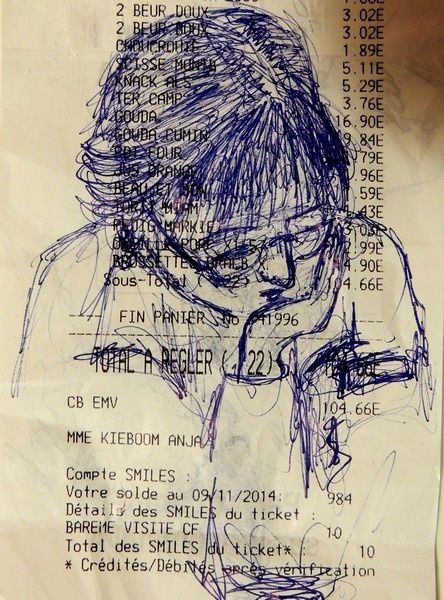 2 BEUR DOUX 3.02E
2 BEUR DOUX 3.02E
CHOUCROUTE 1.89E
SCISSE 5.11E
KNACK ALS 5.29E
TER CAMP 3.76E
GOUDA 16.90E
GOUDA CUMIN 9.84E
POT FOUR 79E
JUS ORANGE 96E
59E
43E
MARKIE
PORC 99E
BROSSETTES 4.90E
Sous-Total ( 22) 104.66E
FIN PANIER No 41996
TOTAL A REGLER ( 22)
CB EMV 104.66E
MME KIEBOOM ANJA
Compte SMILES :
Votre solde au 09/11/2014: 984
Détails des SMILES du ticket :
BAREME VISITE CF 10
Total des SMILES du ticket* : 10
* Crédités/Débités après vérification